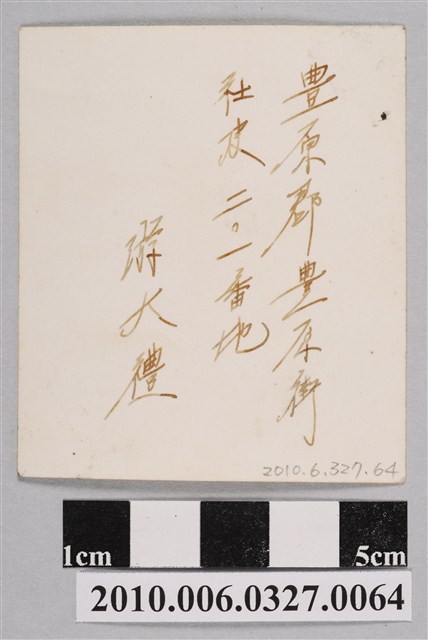 豊原郡豊原街
社皮二〇一番地
游大禮
2010.6.327.64
1cm 5cm
2010.006.0327.0064